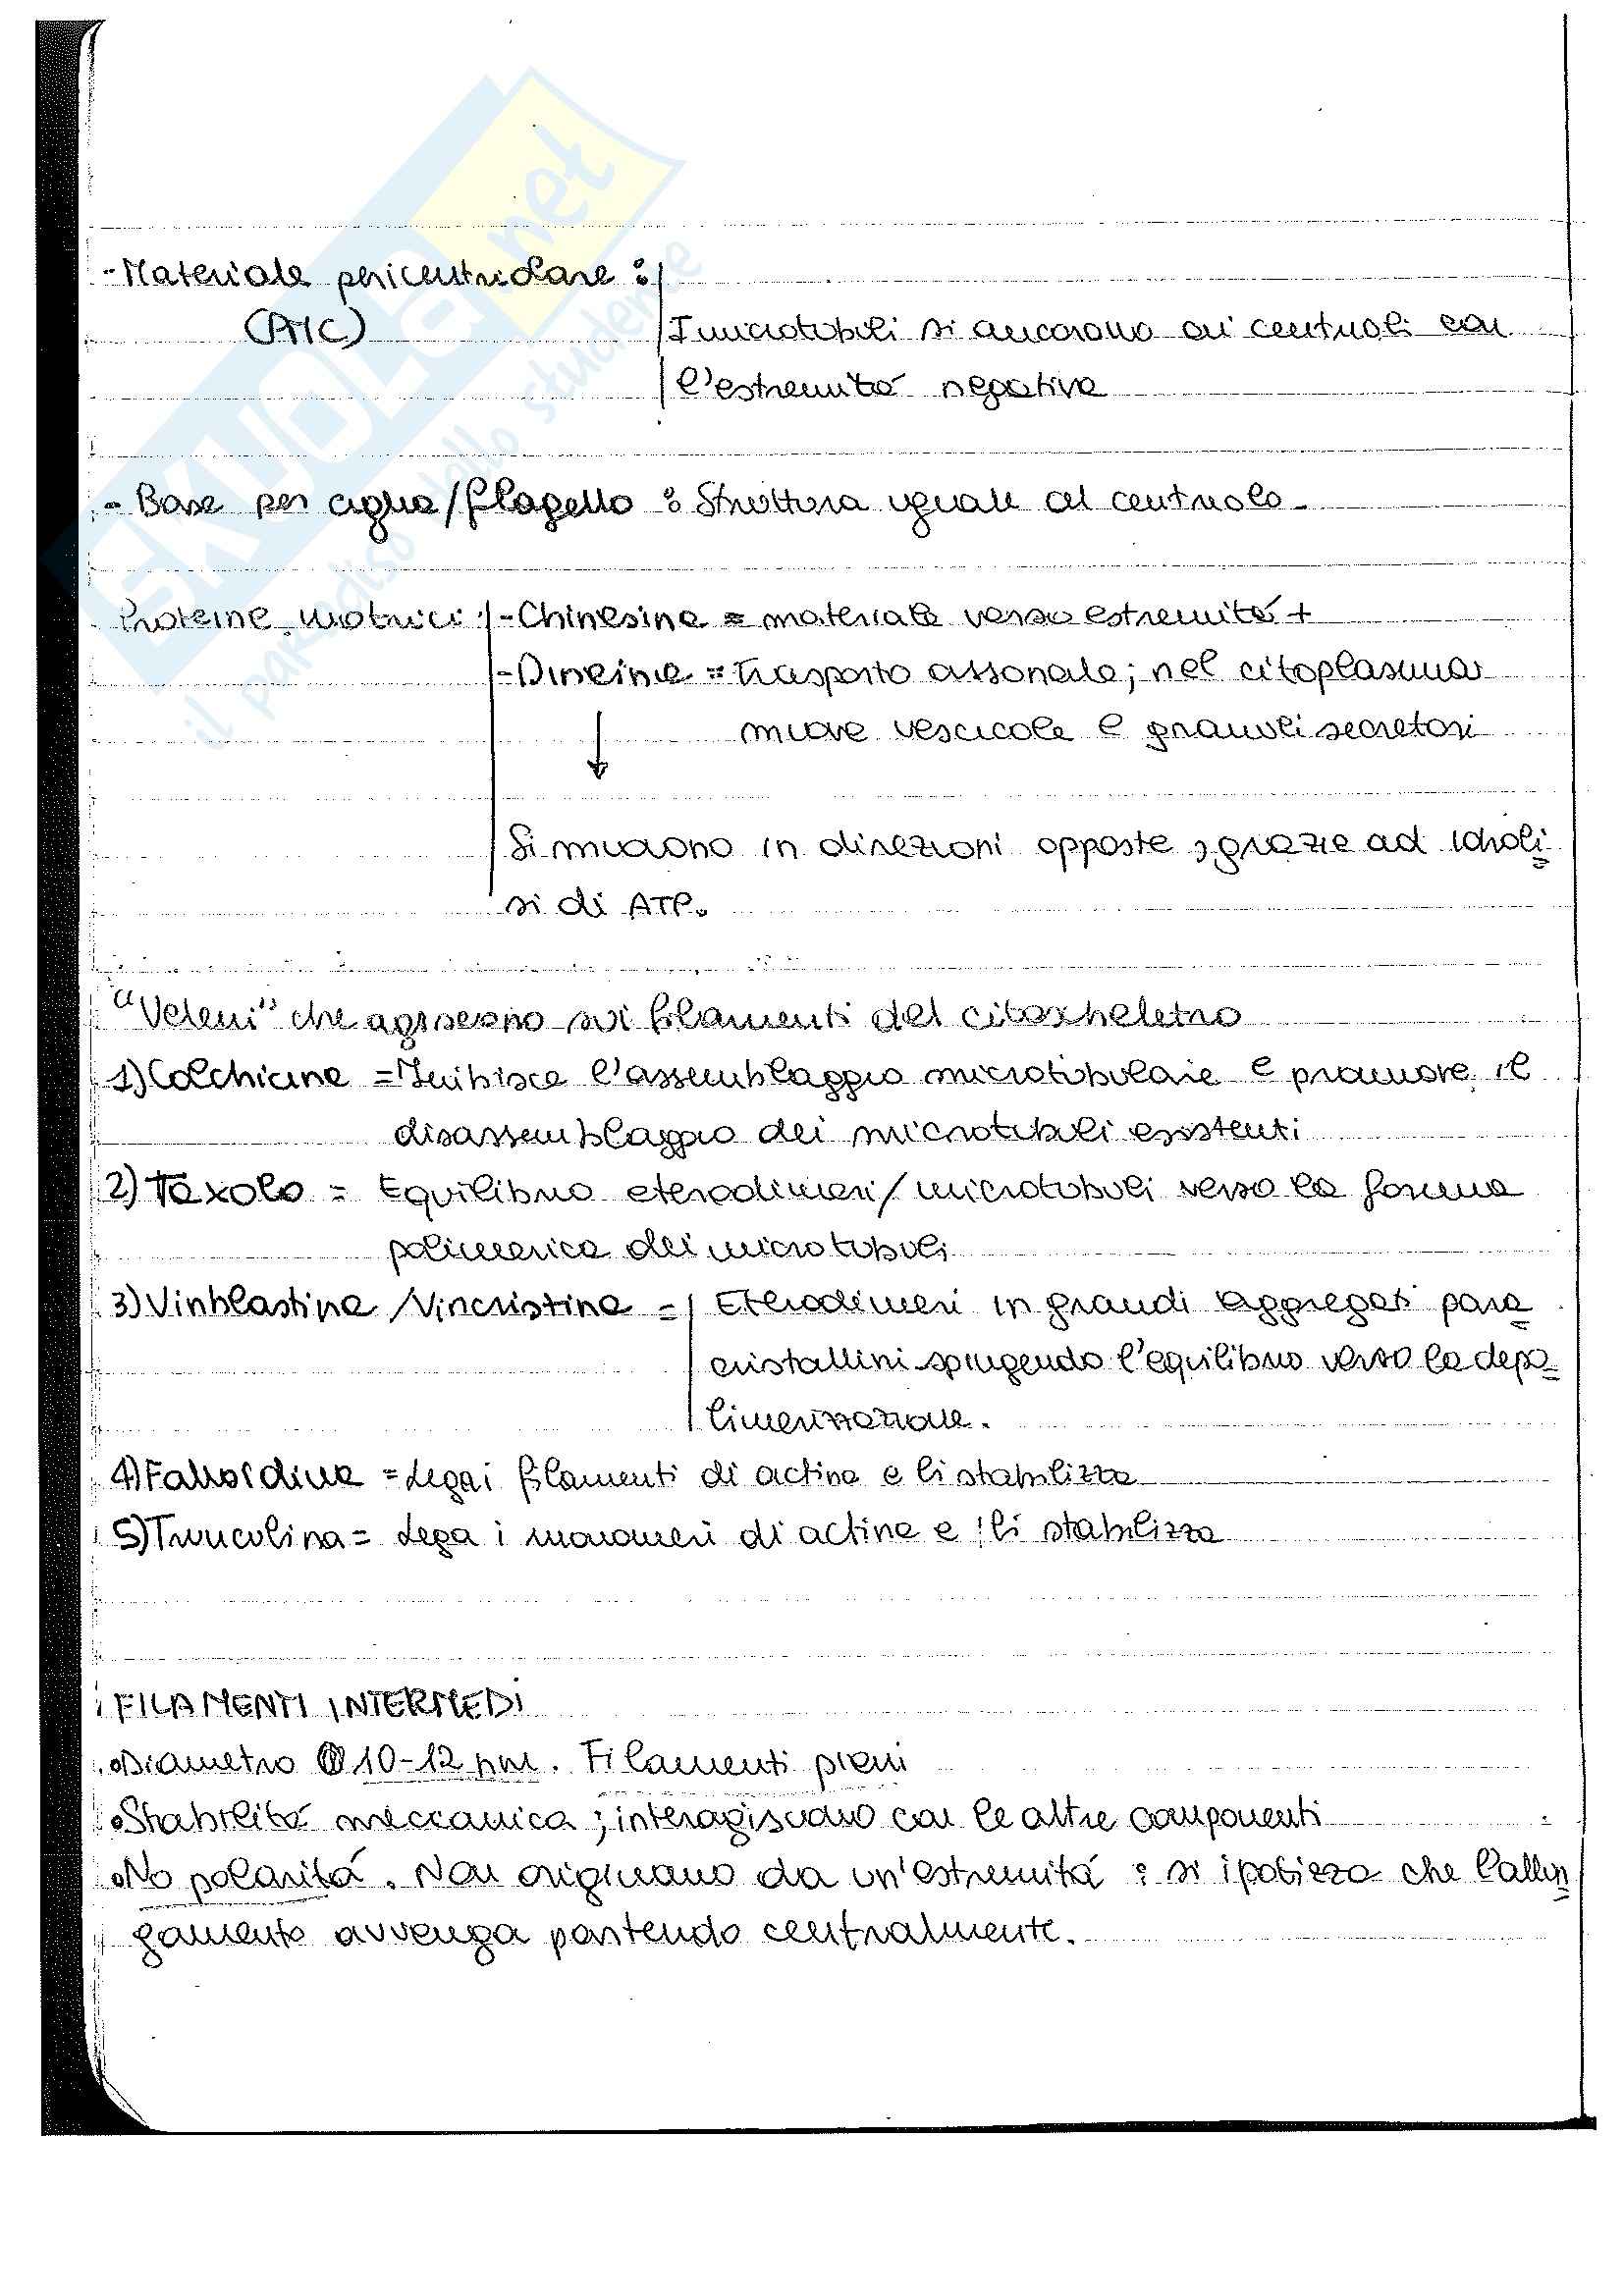 - Materiale pericentriolare :
(PMC)
I microtubuli si ancorano ai centrioli con
l'estremitá negativa
- Base per ciglia/flagello : Struttura uguale al centriolo.
Proteine motrici : - Chinesina = materiale verso estremitá +
- Dineine = Trasporto assonale; nel citoplasma
muove vescicole e granuli secretori
Si muovono in direzioni opposte, grazie ad idroli
si di ATP.
"Veleni" che agiscono sui filamenti del citoscheletro
1) Colchicina = Inibisce l'assemblaggio microtubulare e promuove il
disassemblaggio dei microtubuli esistenti
2) Taxolo = Equilibrio eterodimeri/microtubuli verso la forma
polimerica dei microtubuli
3) Vinblastina/Vincristina = Eterodimeri in grandi aggregati para
cristallini spingendo l'equilibrio verso la depo
limerizzazione.
4) Falloidina = Lega i filamenti di actina e li stabilizza
5) Truncolina = Lega i monomeri di actina e li stabilizza
FILAMENTI INTERMEDI
• Diametro 10-12 nm. Filamenti pieni
• Stabilitá meccanica; interagiscono con le altre componenti
• No polaritá. Non originano da un'estremitá : si ipotizza che l'allun
gamento avvenga partendo centralmente.
SKUOLA.net
il paradiso dello studente